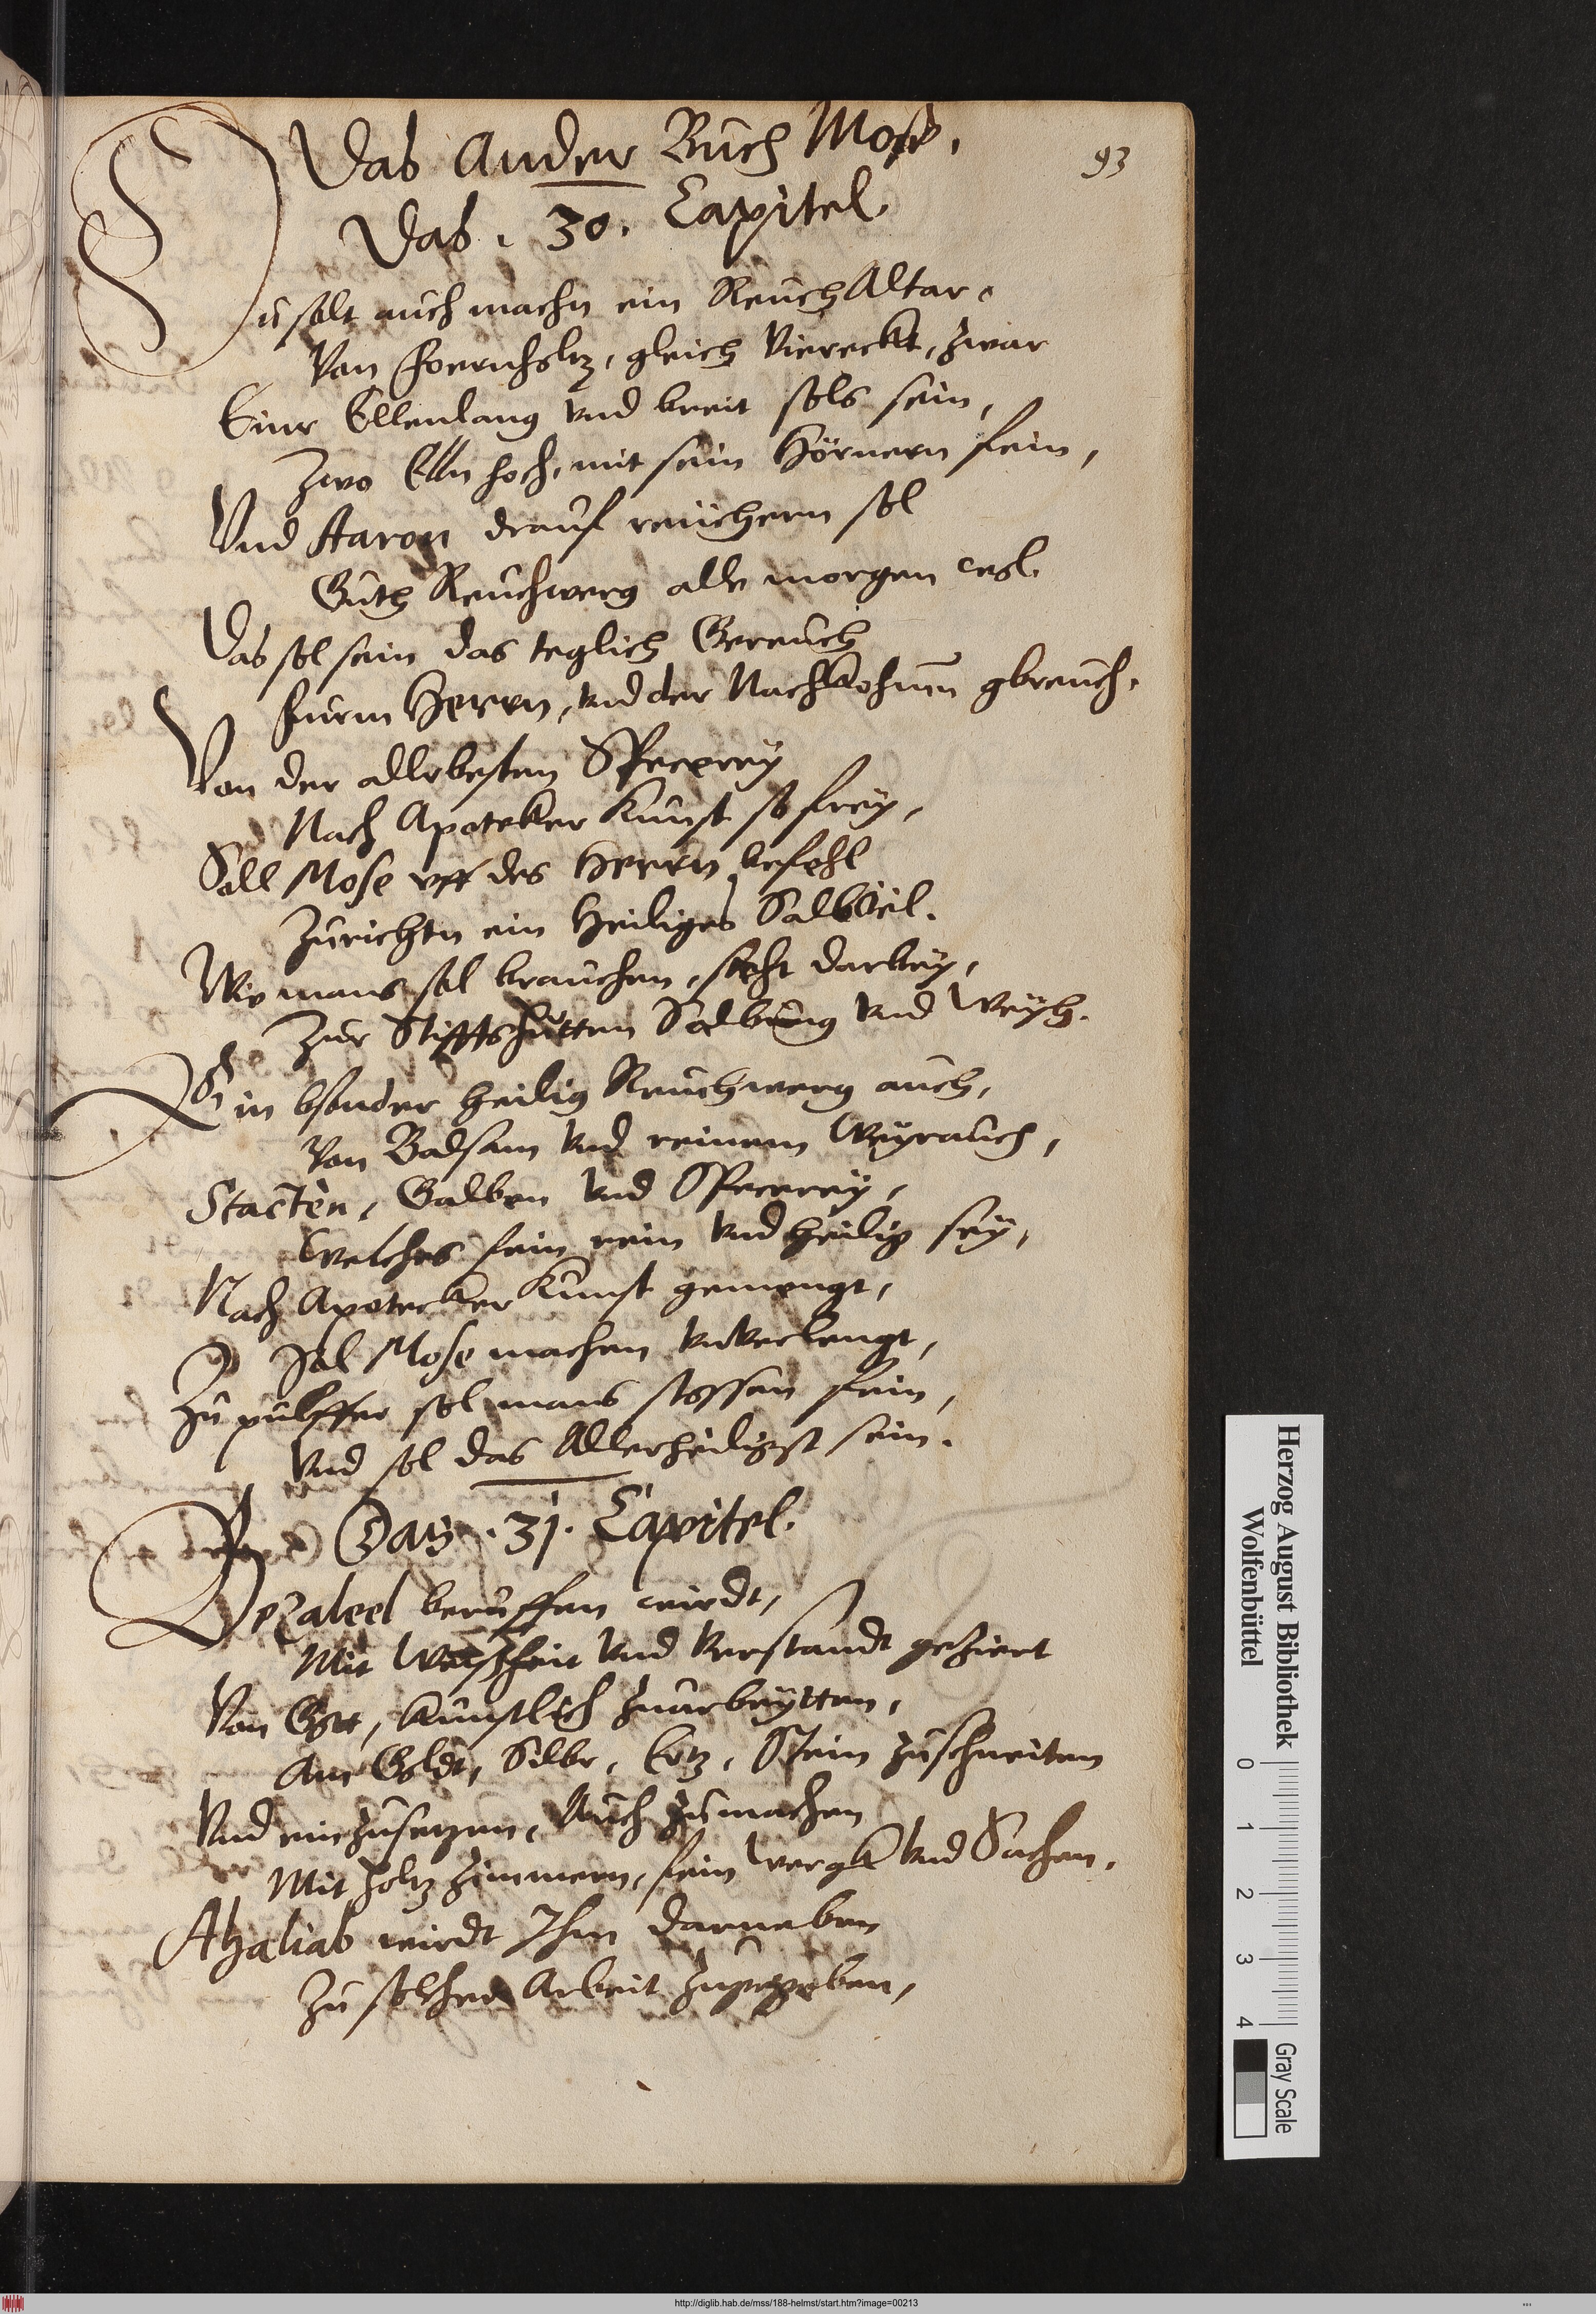 Das Ander Buch Mose.
93
Das. 30. Capitel.
Du solt auch machn ein Reuch Altar.
Von foernholtz, gleich Viereckt, zwar
Einr Ellenlang vnd breit sols sein,
Zwo Elln hoch, mit sein Hörnern fein,
Vnd Aaron drauf reuchern sol
Guth Reuchwerg alle morgen wol.
Das sol sein das teglich Gereuch
furm Herrn, vnd der Nachkohmn gbreuch.
Von der allerbesten Specerey
Nach Apoteker Kunst so frey,
Soll Mose vff des Herrn befehl
Zurichtn ein Heiliges Salböil.
Wie mans sol brauchen, steht darbey,
Zur Stifftshutten Salbung vnd Weyh.
Ein bsonder heilig Reuchwerg auch,
Von Balsam vnd reinem Weyrauch,
Stacten, Galben vnd Specerey,
Welches fein rein vnd heilig sey,
Nach Apotecker Kunst gemengt,
Sol Mose machen vnverlengt,
Zu pulffer sol mans stossen fein,
Vnd sol das Allerheiligst sein.
Das. 31. Capitel.
Bezaleel beruffen wirdt,
Mit Weißheit vnd Verstandt geziert
Von Gott, kunstlich zuarbeytten,
Am Goldt, Silbr, Ertz, Stein zuschneiten
Vnd einzusetzen, Auch zumachen
Mit holtz zimmern, fein Wergk vnd Sachen.
Ahaliab wirdt Ihm darneben
Zu solcher Arbeit zugegeben,
Herzog August Bibliothek
Wolfenbüttel
0 1 2 3 4
Gray Scale
http://diglib.hab.de/mss/188-helmst/start.htm?image=00213